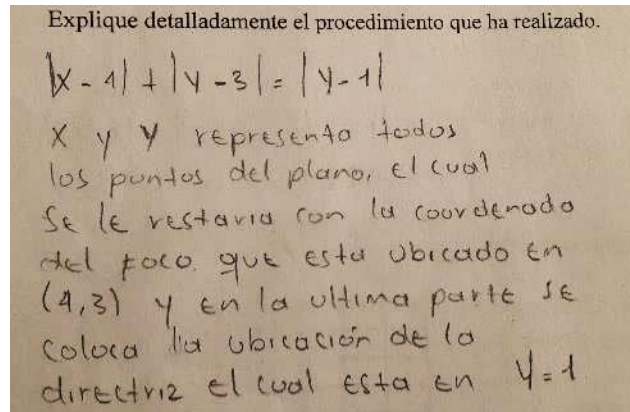 Explique detalladamente el procedimiento que ha realizado.
|x - 4| + |y - 3| = |y - 1|
X y Y representa todos
los puntos del plano, el cual
se le restaria con la coordenada
del foco. que esta ubicado en
(4,3) y en la ultima parte se
coloca la ubicación de la
directriz el cual esta en y = 1